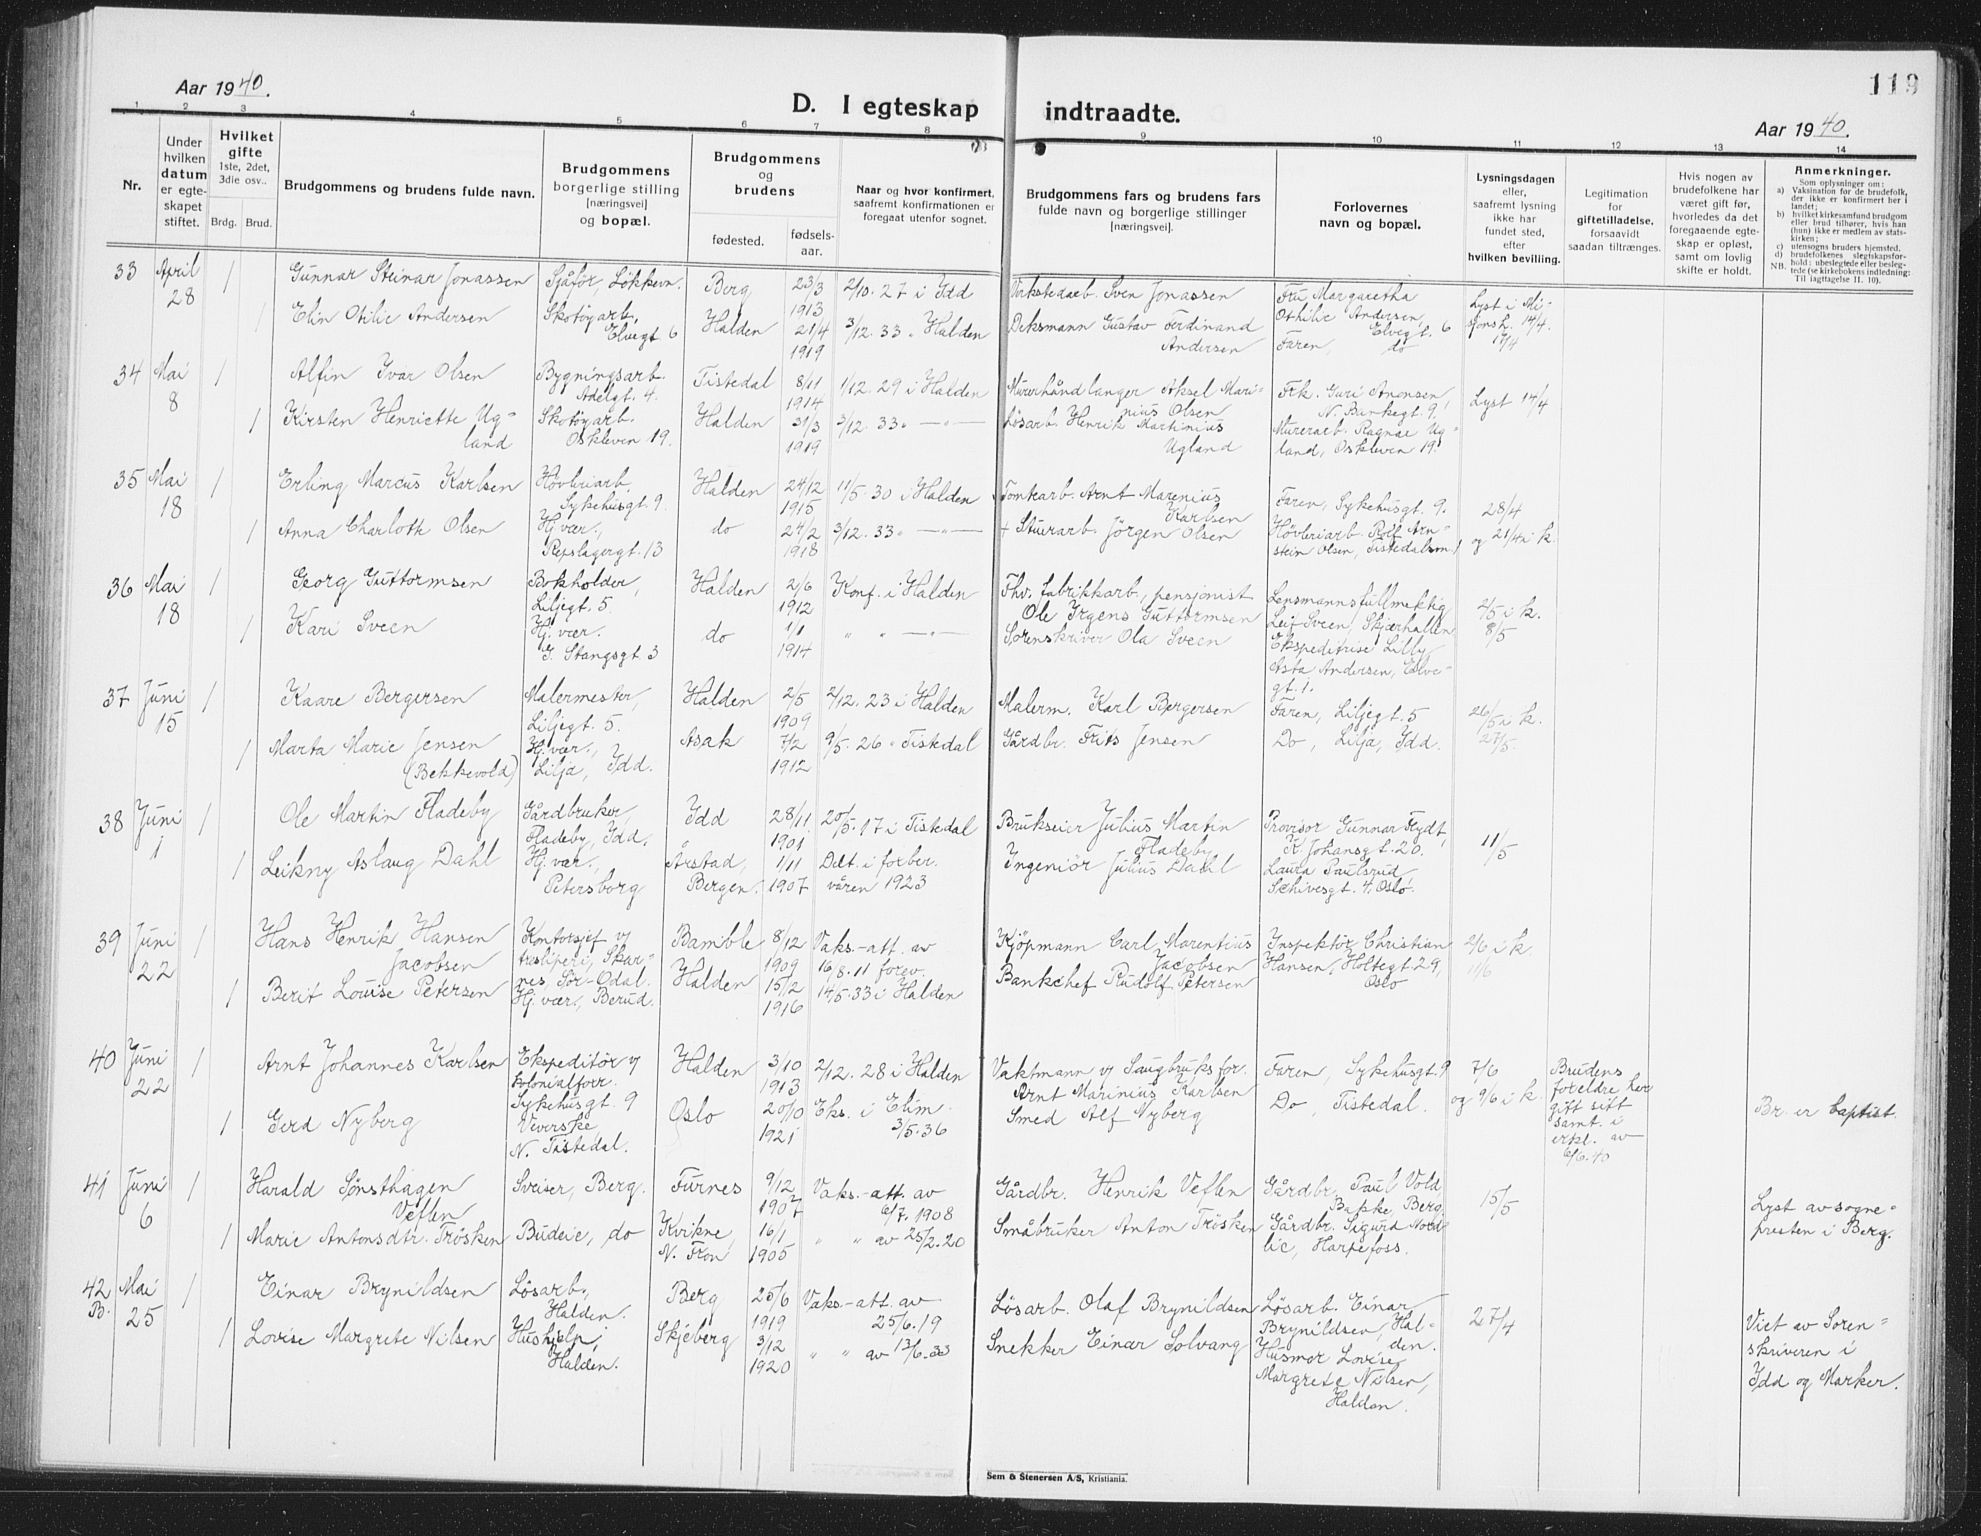 Aar 1940.
D. I egteskap indtraadte.
119
Aar 1940.
1 2 3 4 5 6 7 8 9 10 11 12 13 14
Nr.
Under hvilken datum er egteskapet stiftet.
Hvilket gifte 1ste, 2det, 3die osv..
Brdg. Brud.
Brudgommens og brudens fulde navn.
Brudgommens borgerlige stilling [næringsvei] og bopæl.
Brudgommens og brudens
fødested.
fødselsaar.
Naar og hvor konfirmert, saafremt konfirmationen er foregaat utenfor sognet.
Brudgommens fars og brudens fars fulde navn og borgerlige stillinger [næringsvei].
Forlovernes navn og bopæl.
Lysningsdagen eller, saafremt lysning ikke har fundet sted, efter hvilken bevilling.
Legitimation for giftetilladelse, forsaavidt saadan tiltrænges.
Hvis nogen av brudefolkene har været gift før, hvorledes da det foregaaende egteskap er opløst, samt om lovlig skifte er holdt.
Anmerkninger.
Som oplysninger om:
a) Vaksination før de brudefolk, der ikke er konfirmert her i landet;
b) hvilket kirkesamfund brudgom eller brud tilhører, hvis han (hun) ikke er medlem av statskirken;
c) utensogns bruders hjemsted.
d) brudefolkenes slegtskapsforhold: ubeslegtede eller beslegtede (se kirkebokens indledning: Til iagttagelse II. 10).
NB.
33 April 28 1 Gunnar Steinar Jonassen Sjåfør, Løkkevn. Berg 23/3 1913 2/10. 27 i Idd Verkstedarb. Sven Jonassen Fru Margaretha Othilie Andersen, Elvegt. 6 Lyst i Misjonsh. 14/4. 17/4
1 Elin Otilie Andersen Skotøyarb., Elvegt 6 Halden 21/4 1919 3/12. 33 " Halden Deksmann Gustav Ferdinand Andersen Faren, do
34 Mai 8 1 Alfin Ivar Olsen Bygningsarb. Adelgt. 4. Tistedal 8/11 1914 1/12. 29 i Halden Murerhåndlanger Aksel Marinius Olsen Frk. Guri Aronsen N. Bankegt. 9. Lyst 14/4
1 Kirsten Henriette Ugland Skotøyarb. Oskleven 19. Halden 31/3 1919 3/12. 33 " — " — Løsarb. Henrik Martinius Ugland Murerarb. Ragnar Ugland, Oskleven 19.
35 Mai 18 1 Erling Marcus Karlsen Høvleriarb. Sykehusgt. 9 Halden 24/12 1915 11/5. 30 i Halden Tomtearb. Arnt Marenius Karlsen Faren, Sykehusgt. 9. 28/4 og 21/4 i k.
1 Anna Charloth Olsen Hj. vær., Repslagergt. 13 do 24/2 1918 3/12. 33 " — " — + Stuerarb. Jörgen Olsen Høvleriarb. Rolf Arnstein Olsen, Tistedalsm.
36 Mai 18 1 Georg Guttormsen Bokholder, Liljegt. 5. Halden 2/6 1912 Konf. i Halden Fhv. fabrikkarb., pensjonist Ole Irgens Guttormsen Lensmannsfullmektig Leif Sveen, Skjærhallen 2/5 i k. 8/5
1 Kari Sveen Hj. vær. G. Stangsgt. 3 do 1/1 1914 " " — " — Sorenskriver Ola Sveen Ekspeditrise Lilly Asta Andersen, Elvegt. 1.
37 Juni 15 1 Kaare Bergersen Malermester, Liljegt. 5. Halden 2/5 1909 2/12. 23 i Halden Malerm. Karl Bergersen Faren, Liljegt. 5 26/5 i k. 27/5.
1 Marta Marie Jensen (Bekkevold) Hj. vær., Lilja, Idd. Asak 7/2 1912 9/5. 26 " Tistedal Gårdbr. Frits Jensen Do, Lilja, Idd.
38 Juni 1 1 Ole Martin Fladeby Gårdbruker, Fladeby, Idd. Idd 28/11 1901 20/5. 17 i Tistedal Brukseier Julius Martin Fladeby Provisor Gunnar Frydt, K. Johansgt. 20. 11/5
1 Leikny Aslaug Dahl Hj. vær., Petersborg Årstad, Bergen. 1/11 1907 Delt. i forber. våren 1923 Ingeniör Julius Dahl Laura Paulsrud Schivesgt. 4. Oslo.
39 Juni 22 1 Hans Henrik Hansen Jacobsen Kontorsjef v/ tresliperi, Skarnes, Sör-Odal. Bamble 8/12 1909 Vaks.-att. av 16/8. 11 forev. Kjöpmann Carl Marentius Jacobsen Inspektör Christian Hansen, Holtegt. 29, Oslo 2/6 i k. 11/6
1 Berit Louise Petersen Hj. vær., Berud. Halden 15/2 1916 14/5. 33 i Halden Bankchef Rudolf Petersen
40 Juni 22 1 Arnt Johannes Karlsen Ekspeditör v/ kolonialforr. Sykehusgt. 9 Halden 3/10 1913 2/12. 28 i Halden Vaktmann v/ Saugbruksfor. Arnt Marinius Karlsen Faren, Sykehusgt. 9 7/6 og 9/6 i k. Brudens foreldre har gitt sitt samt. i erkl. av 6/6. 40
1 Gerd Nyberg Veverske N. Tistedal. Oslo 20/10 1921 Eks. i Elim 3/5. 36 Smed Alf Nyberg Do, Tistedal. Br. er baptist.
41 Juni 6 1 Harald Sønsthagen Veflen Sveiser, Berg. Furnes 9/12 1907 Vaks.-att. av 6/7. 1908 Gårdbr. Henrik Veflen Gårdbr. Paul Vold, Berg. 15/5 Lyst av sognepresten i Berg.
1 Marie Antonsdtr. Trösken Budeie, do Kvikne N. Fron 16/1 1905 " " av 25/2. 20 Småbruker Anton Trösken Gårdbr. Sigurd Nordlie, Harpefoss.
42 B. Mai 25 1 Einar Brynildsen Lösarb., Halden. Berg 25/6 1919 Vaks.-att. av 25/6. 19 Lösarb. Olaf Brynildsen Lösarb. Einar Brynildsen, Halden. 27/4 Viet av Sorenskriveren i Idd og Marker.
1 Lovise Margrete Nilsen Hushjelp, Halden. Skjeberg 3/12 1920 " " av 13/6. 33 Snekker Einar Solvang Husmor Lovise Margrete Nilsen, Halden.
Sem & Stenersen A/S, Kristiania.